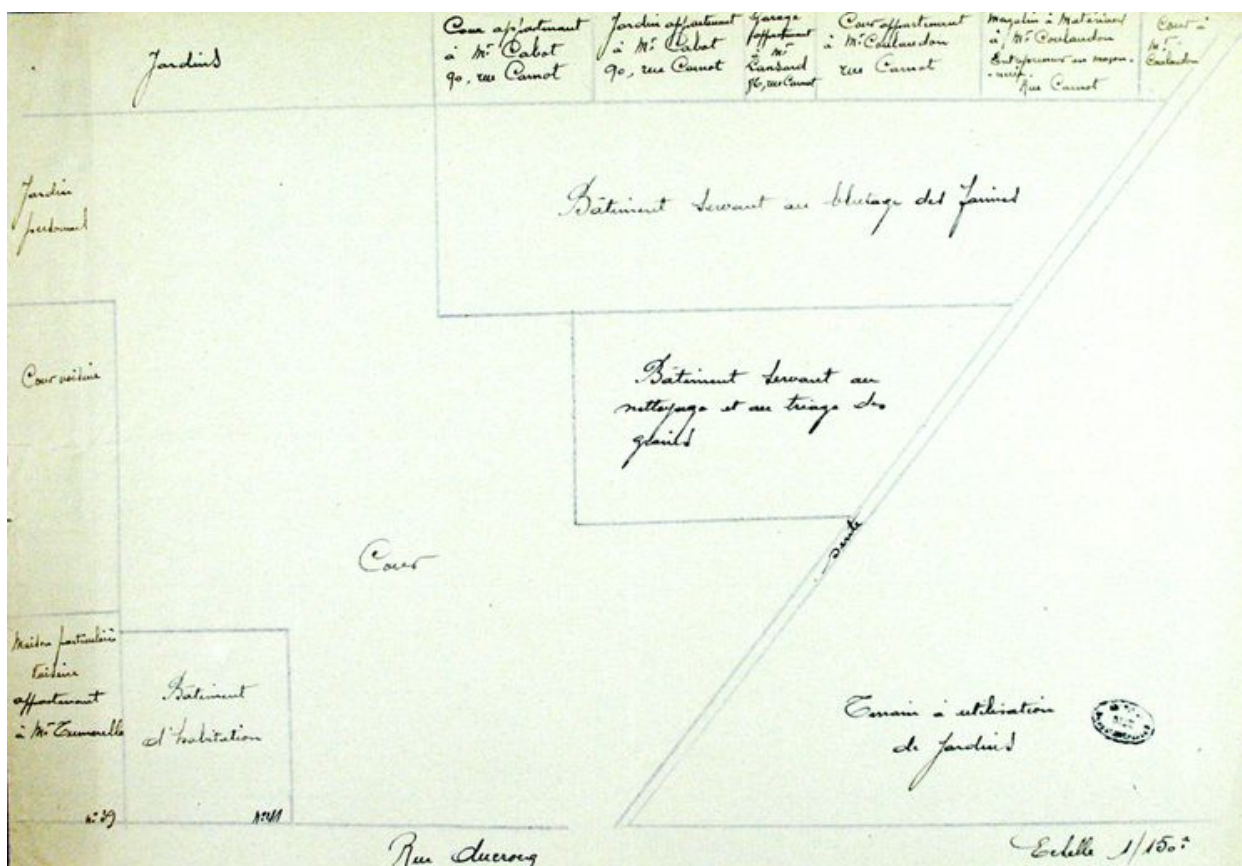 Jardins
Cour appartenant
à Mr Cabot
90, rue Carnot
Jardin appartenant
à Mr Cabot
90, rue Carnot
Garage
appartenant
à Mr
Lansard
86, rue Carnot
Cour appartenant
à Mr Coulaudon
rue Carnot
Magasin à Matériaux
à Mr Coulaudon
Entrepreneur en maçon-
-nerie
Rue Carnot
Cour à
Mr
Coulaudon
Jardin
Bâtiment servant au blutage des farines
Cour voisine
Bâtiment servant au
nettoyage et au triage des
grains
sente
Cour
Maison particulière
voisine
appartenant
à Mr
Bâtiment
d'habitation
Terrain à utilisation
de Jardins
n° 39
N° 41
Rue Ducrocq
Echelle 1/150e